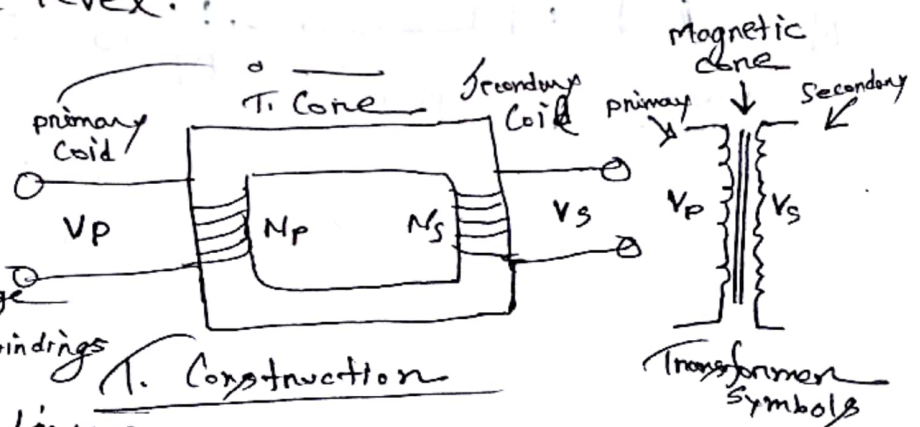 T. Core
primary
Coid
Secondary
Coil
VP
NP
NS
VS
indings
T. Construction
Magnetic
core
primay
Secondary
VP
VS
Transformer
Symbols